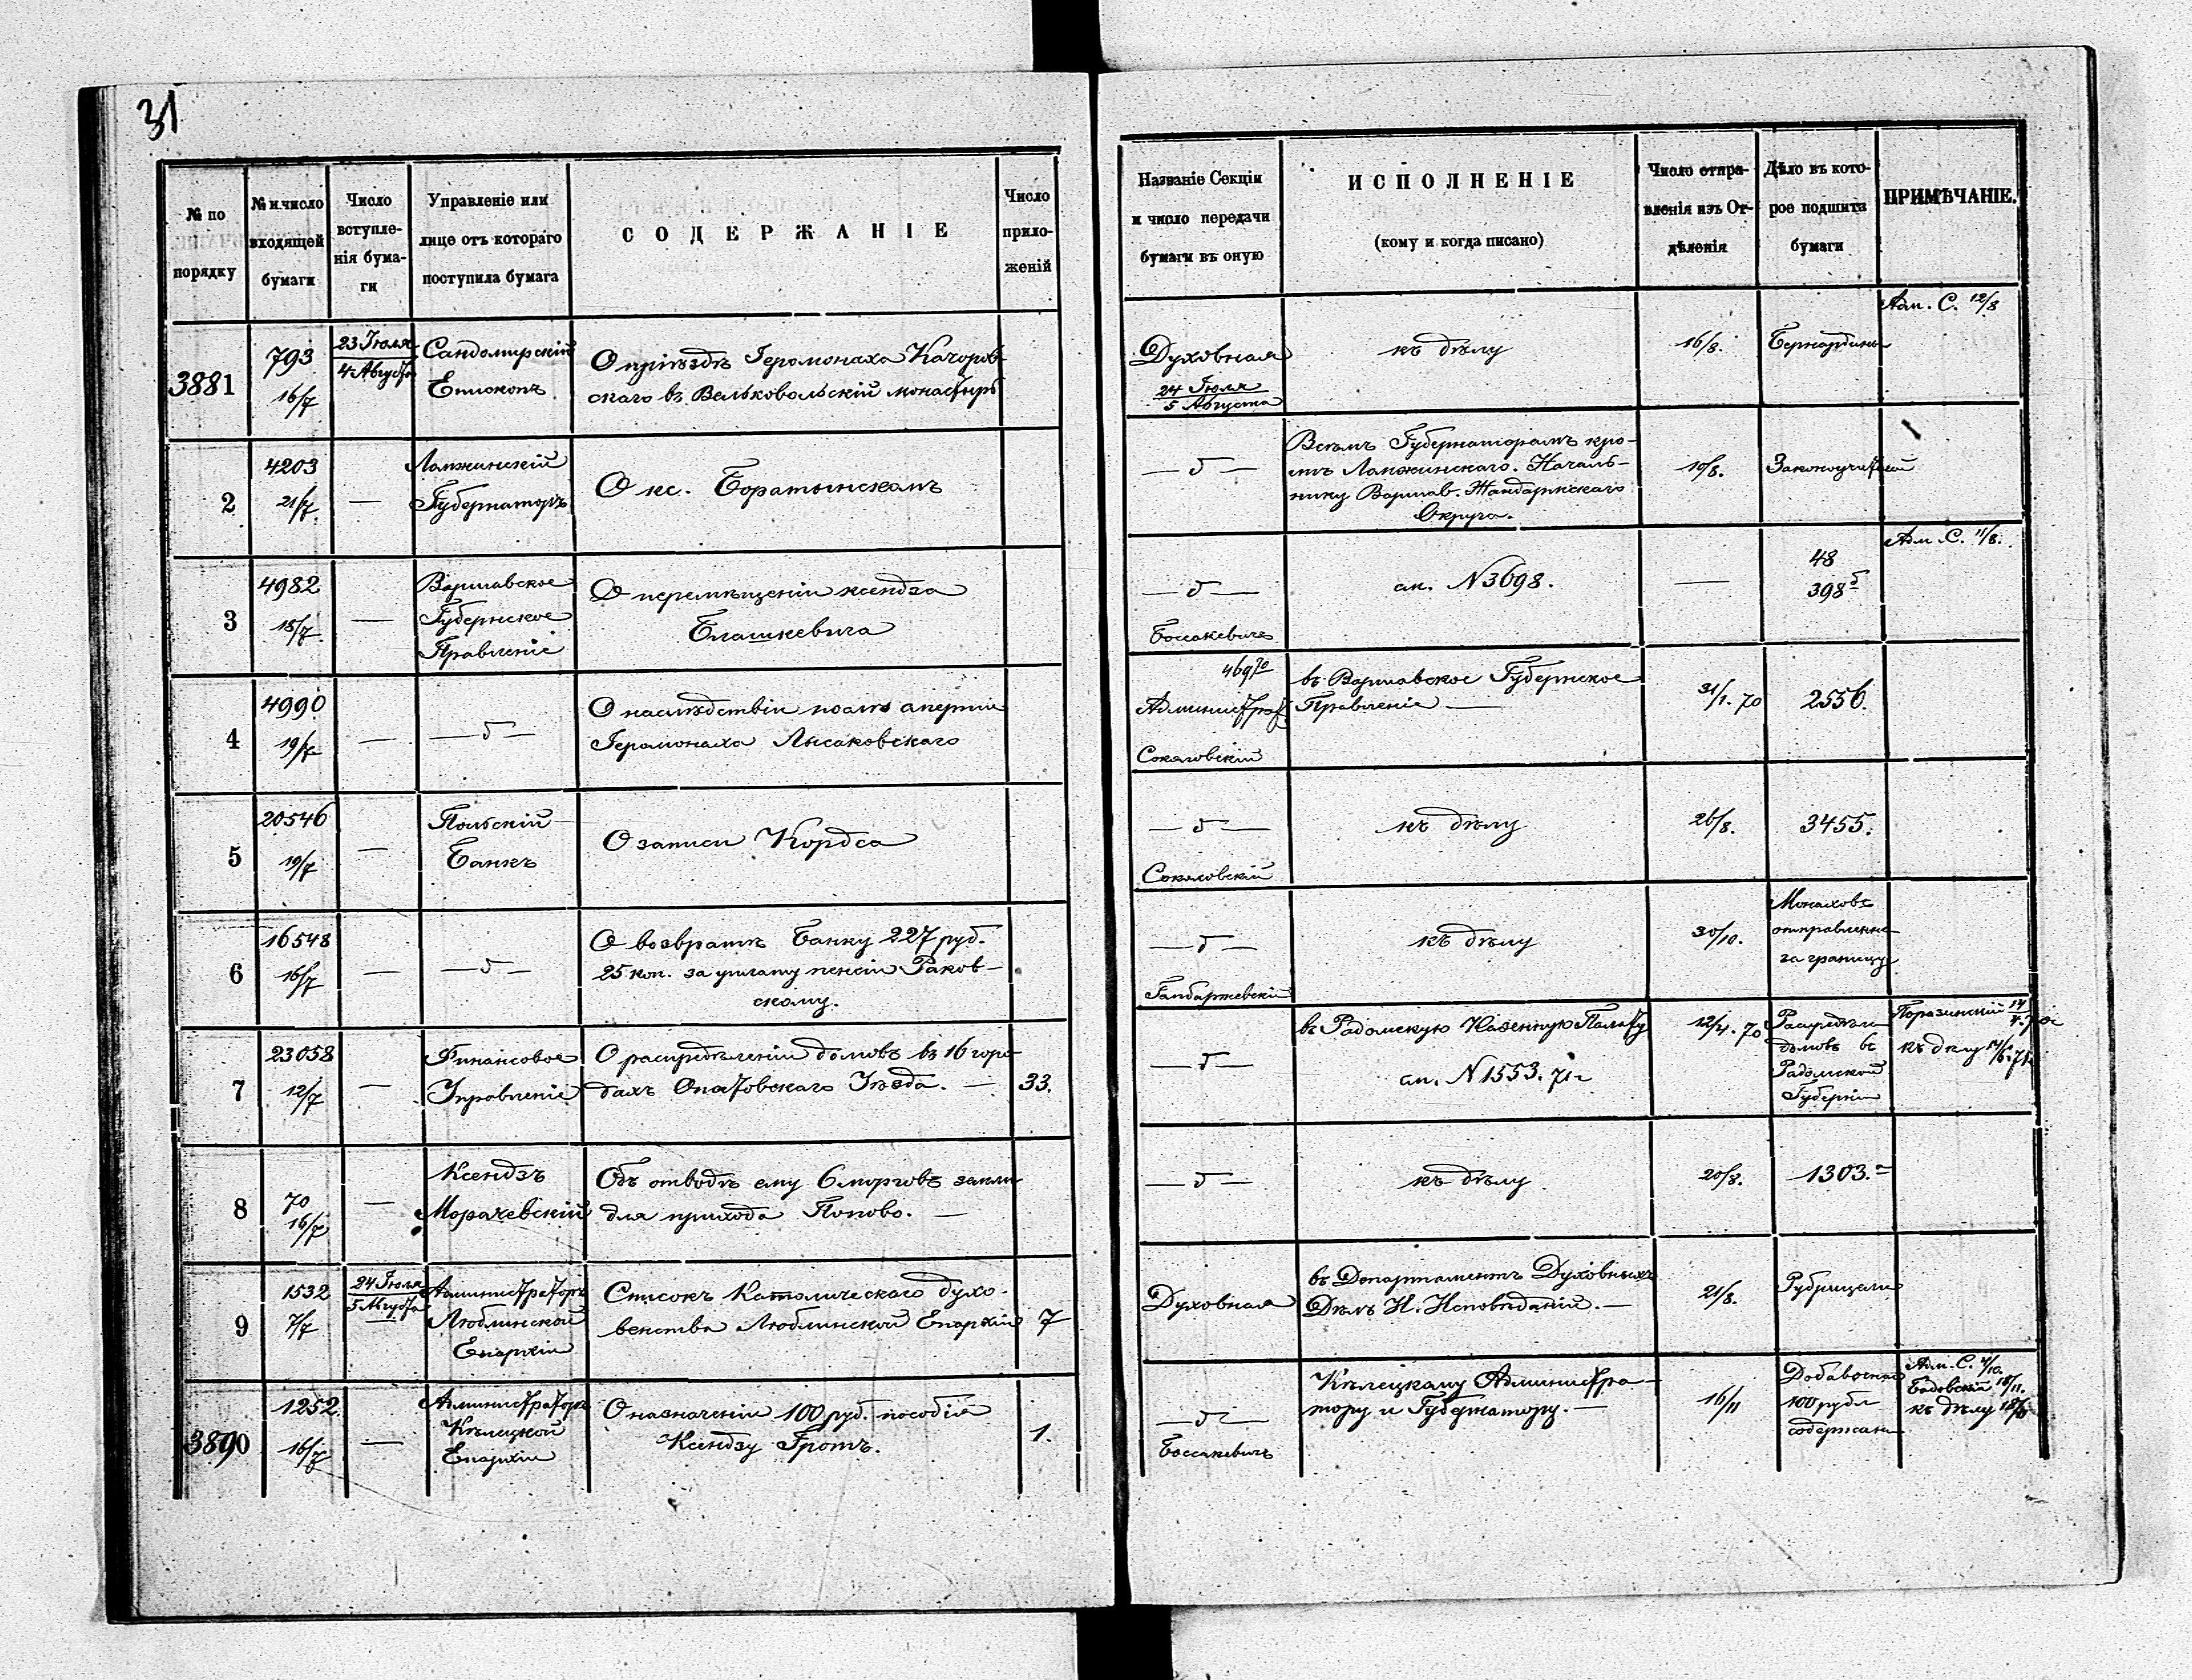 31
№ по порядку
№ и число входящей бумаги
Число вступленія бумаги
Управленіе или лице отъ котораго поступила бумага
СОДЕРЖАНІЕ
Число приложеній
Названіе Секціи и число передачи бумаги въ оную
ИСПОЛНЕНІЕ
(кому и когда писано)
Число отправленія изъ Отдѣленія
Дѣло въ которое подшита бумаги
ПРИМѢЧАНІЕ.
3881
793
16/7
23 Іюля
4 Августа
Сандомирскій
Епископъ
О пріѣздѣ Іеромонаха Качоров-
скаго въ Вельковольскій монастырь
Духовная
24 Іюля
5 Августа
къ дѣлу
16/8.
Бернардины
Адм. С. 12/8
2
4203
21/7.
—
Ломжинскій
Губернаторъ
О кс. Боратынскомъ
— 5 —
Всѣмъ Губернаторамъ кро-
мѣ Ломжинскаго. Началь-
нику Варшав. Жандармскаго
Округа.
10/8.
Законоучителей
3
4982
18/7.
—
Варшавское
Губернское
Правленіе
О перемѣщеніи ксендза
Блашкевича
— 5 —
Боссакевичъ
ан. N 3698.
—
48
398 б
Адм. С. 11/8.
4
4990
19/7
—
— 5 —
О наслѣдствіи
Іеромонаха Лысаковскаго
469 70
Администрат
Соколовскій
въ Варшавское Губернское
Правленіе —
31/1. 70
2556.
5
20546
19/7
—
Польскій
Банкъ
О записи Кордса
— 5 —
Соколовскій
къ дѣлу
26/8.
3455.
6
16548
16/7
—
— 5 —
О возвратѣ Банку 227 руб.
25 коп. за уплату пенсіи Раков-
скому.
— 5 —
къ дѣлу
30/10.
Монаховъ
отправленн
за границу
7
23058
12/7
—
Финансовое
Управленіе
О распредѣленіи домовъ въ 16 горо
дахъ Опатовскаго Уѣзда. —
33.
— 5 —
въ Радомскую Казенную Палату
ан. N 1553. 71 г
12/4. 70
Распредѣл
домовъ въ
Радомской
Губерніи
къ дѣлу
8
70
16/7
—
Ксендзъ
Морачевскій
Объ отводѣ ему 6 морговъ земли
для прихода Попово. —
— 5 —
къ дѣлу
20/8.
1303.
9
1532
7/7
24 Іюля
5 Августа
Администраторъ
Люблинской
Епархіи
Списокъ Католическаго духо-
венства Люблинской Епархіи
7
Духовная
въ Департаментъ Духовныхъ
Дѣлъ И. Исповѣданій. —
21/8.
Рубрицели
3890
1252.
16/7
—
Администраторъ
Кѣлецкой
Епархіи
О назначеніи 100 руб. пособія
Ксендзу Гротъ.
1.
— 5 —
Боссакевичъ
Кѣлецкому Администра-
тору и Губернатору. —
16/11
Добавочная
100 рубл
содержан
Адм. С. 4/10.
къ дѣлу